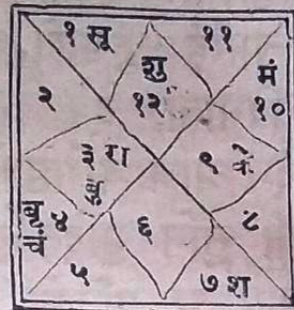 १ सू
११
शु
१२
मं
१०
२
३ रा
बु
९ के
बृ
चं
४
६
८
५
७ श